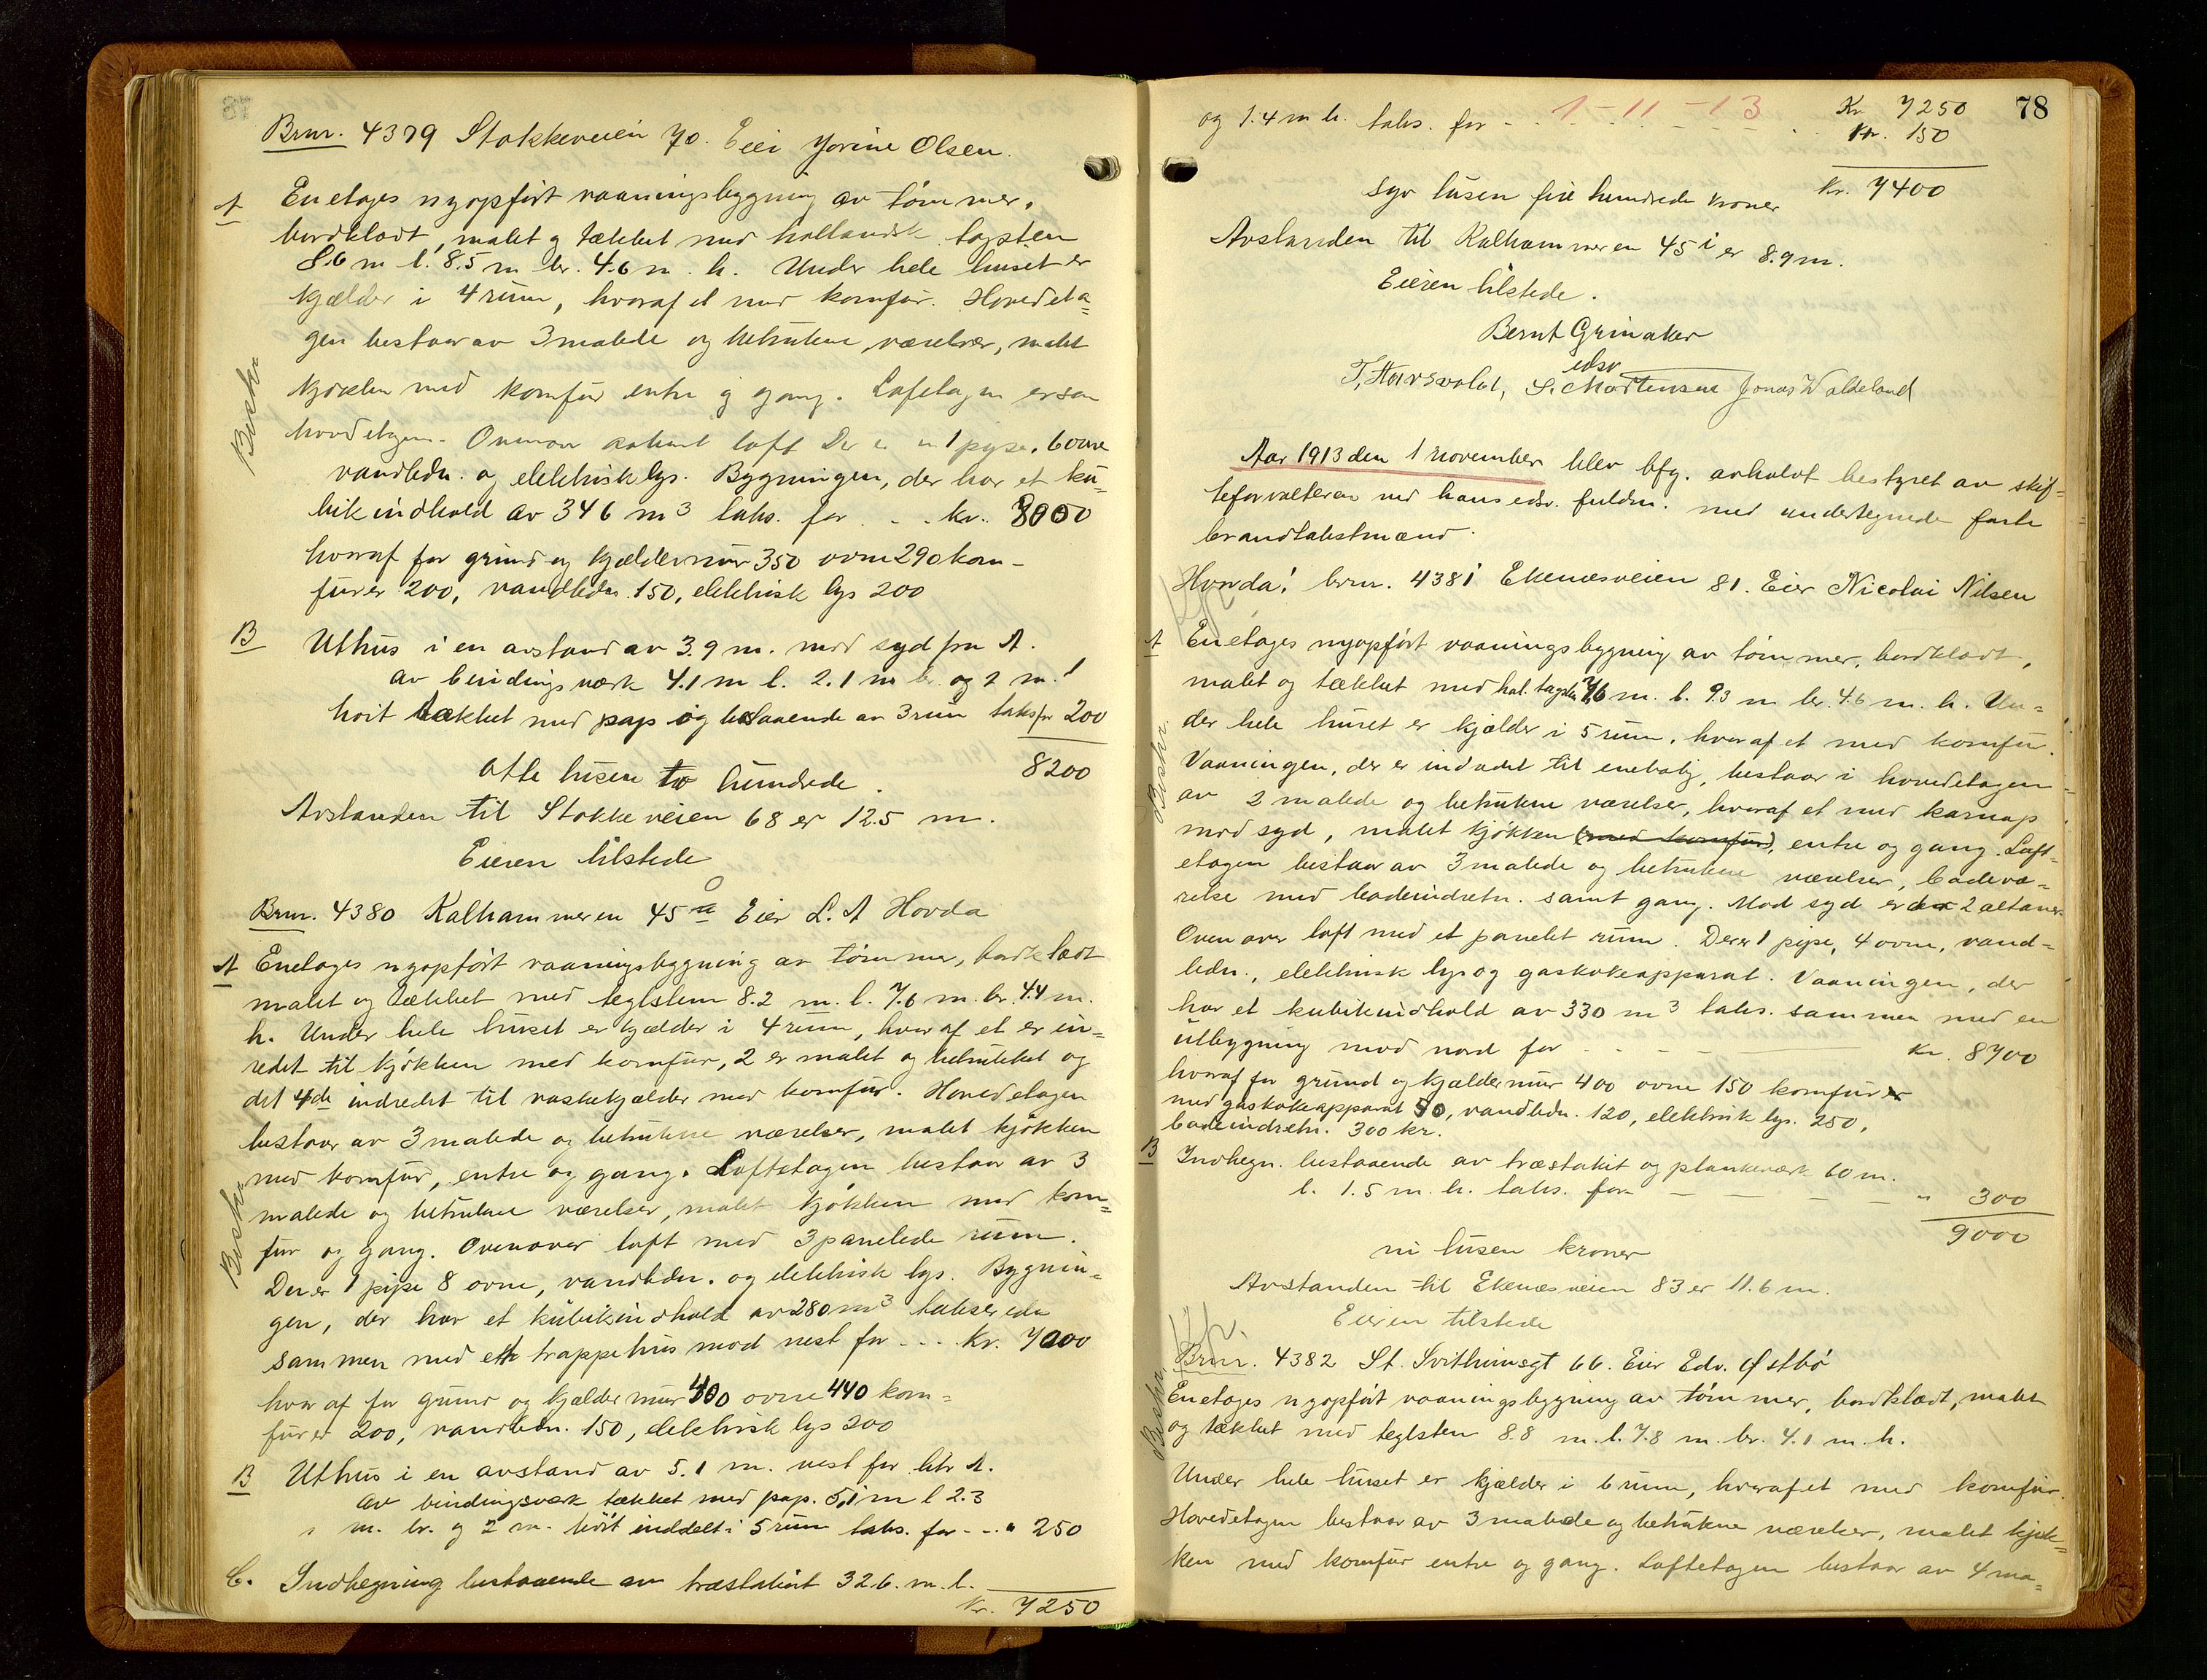 Brnr. 4379 Stokkeveien 70. Eier Jorine Olsen.
A Enetages nyopført vaaningsbygning av tømmer,
bordklædt, malet og tækket med hollandsk tagsten
8.6 m l. 8.5 m br. 4.6 m. h. Under hele huset er
kjælder i 4 rum, hvoraf et med komfur. Hovedeta=
gen bestaar av 3 malede og betrukne værelser, malet
kjøkken med komfur entre og gang. Loftetagen er som
hovedetagen. Ovenover loft Der er 1 pipe, 6 ovne
Beskr.
vandledn. og elektrisk lys. Bygningen, der har et ku=
bikindhold av 346 m3 taks. for . . . kr. 8000
hvoraf for grund og kjældermur 350 ovne 290 kom-
furer 200, vandledn. 150, elektrisk lys 200
B Uthus i en avstand av 3.9 m. mod syd fra A.
av bindingsværk 4.1 m l. 2.1 m br. og 2 m.
høit tækket med pap og bestaaende av 3 rum taks for 200
8200
otte tusen to hundrede.
Avstanden til Stokkeveien 68 er 12.5 m.
Eieren tilstede
Brnr. 4380 Kalhammeren 45 a Eier L. A Hovda
A Enetages nyopført vaaningsbygning av tømmer, bordklædt
malet og tækket med teglsten 8.2 m. l. 7.6 m. br. 4.4 m.
h. Under hele huset er kjælder i 4 rum, hvoraf et er in=
redet til kjøkken med komfur, 2 er malet og betrukket og
det 4de indredet til vaskekjælder med komfur. Hovedetagen
bestaar av 3 malede og betrukne værelser, malet kjøkken
med komfur, entre og gang. Loftetagen bestaar av 3
Beskr.
malede og betrukne værelser, malet kjøkken med kom=
fur og gang. Ovenover loft med 3 panelede rum.
Der er 1 pipe 8 ovne, vandledn. og elektrisk lys. Bygnin=
gen, der har et kubikindhold av 280 m3 takseredes
sammen med et trappehus mod vest for ... kr. 7000
hvoraf for grund og kjældermur 400 ovne 440 kom=
furer 200, vandledn. 150, elektrisk lys 200
B Uthus i en avstand av 5.1 m. vest for litr A.
av bindingsværk tækket med pap. 5,1 m l 2.3
m. br. og 2 m. høit inddelt i 5 rum taks. for - - " 250
C. Indhegning bestaaende av træstakit 32.6. m. l.
Kr. 7250
78
og 1.4 m h. taks. for - - 1-11-13 Kr. 7250
Kr. 150
Kr. 7400
syv tusen fire hundrede kroner
Avstanden til Kalhammeren 45 i er 8.9 m.
Eieren tilstede.
Bernt Grinaker
edsv
T. Harsvold, S. Mortensen Jonas Waldeland
Aar 1913 den 1 november blev bfg. avholdt bestyret av skif=
teforvalteren ved hans edsv. fuldm. med undertegnede faste
brandtakstmænd.
Hvorda: brnr. 4381 Ekenæsveien 81. Eier Nicolai Nilsen
A Enetages nyopført vaaningsbygning av tømmer, bordklædt,
malet og tækket med hol. tagsten 7.6 m. l. 9.3 m br. 4.6 m. h. Un=
der hele huset er kjælder i 5 rum, hvoraf et med komfur.
Beskr.
Vaaningen, der er indredet til enebolig, bestaar i hovedetagen
av 2 malede og betrukne værelser, hvoraf et med karnap
mod syd, malet kjøkken (med komfur), entre og gang. Loft=
etagen bestaar av 3 malede og betrukne værelser, badevæ=
relse med badeindretn. samt gang. Mod syd er der 2 altaner
Ovenover loft med et panelet rum. Der er 1 pipe, 4 ovne, vand=
ledn., elektrisk lys og gaskokeapparat. Vaaningen, der
har et kubikindhold av 330 m3 taks. sammen med en
utbygning mod nord for - - - Kr. 8700
hvoraf for grund og kjældermur 400 ovne 150 komfur
med gaskokeapparat 50, vandledn. 120, elektrisk lys. 250,
badeindretn. 300 kr.
B Indhegn. bestaaende av træstakit og plankeværk 60 m.
l. 1.5 m. h. taks. for - - - " 300
9000
ni tusen kroner
Avstanden til Ekenæsveien 83 er 11.6 m.
Eieren tilstede
Brnr. 4382 St. Svithunsgt 66. Eier Edv. Østbø
Beskr.
Enetages nyopført vaaningsbygning av tømmer, bordklædt, malet
og tækket med teglsten 8.8 m. l. 7.8 m. br. 4.1 m. h.
Under hele huset er kjælder i 6 rum, hvoraf et med komfur.
Hovedetagen bestaar av 3 malede og betrukne værelser, malet kjøk=
ken med komfur entre og gang. Loftetagen bestaar av 4 ma=